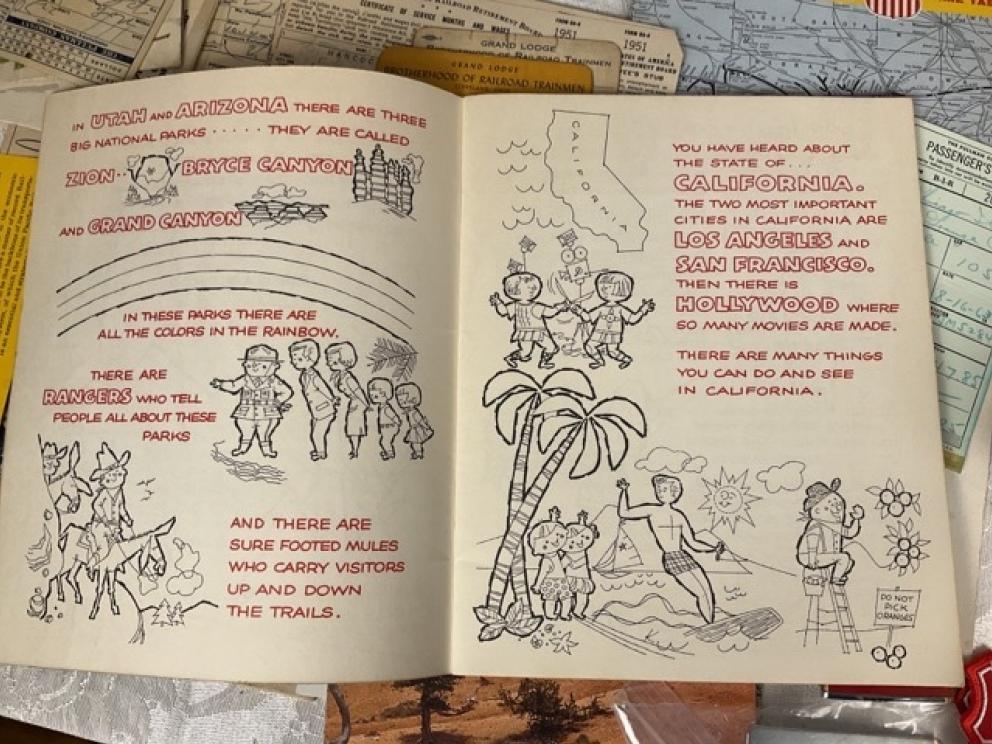 CERTIFICATE OF SERVICE MONTHS AND WAGES
FORM BA-6
1951
1951
GRAND LODGE
BROTHERHOOD OF RAILROAD TRAINMEN
GRAND LODGE
BROTHERHOOD OF RAILROAD TRAINMEN
PASSENGER'S
IN UTAH AND ARIZONA THERE ARE THREE
BIG NATIONAL PARKS ..... THEY ARE CALLED
ZION.. BRYCE CANYON
AND GRAND CANYON
IN THESE PARKS THERE ARE
ALL THE COLORS IN THE RAINBOW.
THERE ARE
RANGERS WHO TELL
PEOPLE ALL ABOUT THESE
PARKS
AND THERE ARE
SURE FOOTED MULES
WHO CARRY VISITORS
UP AND DOWN
THE TRAILS.
CALIFORNIA
YOU HAVE HEARD ABOUT
THE STATE OF...
CALIFORNIA.
THE TWO MOST IMPORTANT
CITIES IN CALIFORNIA ARE
LOS ANGELES AND
SAN FRANCISCO.
THEN THERE IS
HOLLYWOOD WHERE
SO MANY MOVIES ARE MADE.
THERE ARE MANY THINGS
YOU CAN DO AND SEE
IN CALIFORNIA.
DO NOT
PICK
ORANGES